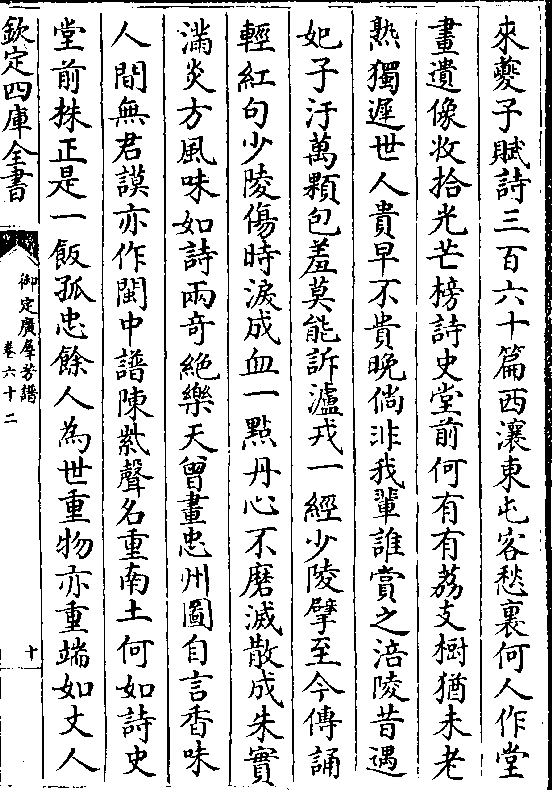 來夔子賦詩三百六十篇西瀼東屯客愁裏何人作堂
畫遺像收拾光芒榜詩史堂前何有有荔支樹猶未老
熟獨遲世人貴早不貴晚倘非我輩誰賞之涪陵昔遇
妃子汙萬顆包羞莫能訴瀘戎一經少陵擘至今傳誦
輕紅句少陵傷時淚成血一點丹心不磨滅散成朱實
滿炎方風味如詩兩奇絶樂天曾畫忠州圖自言香味
人間無君謨亦作閩中譜陳紫聲名重南土何如詩史
堂前株正是一飯孤忠餘人為世重物亦重端如丈人
欽定四庫全書
御定廣羣芳譜
卷六十二
十